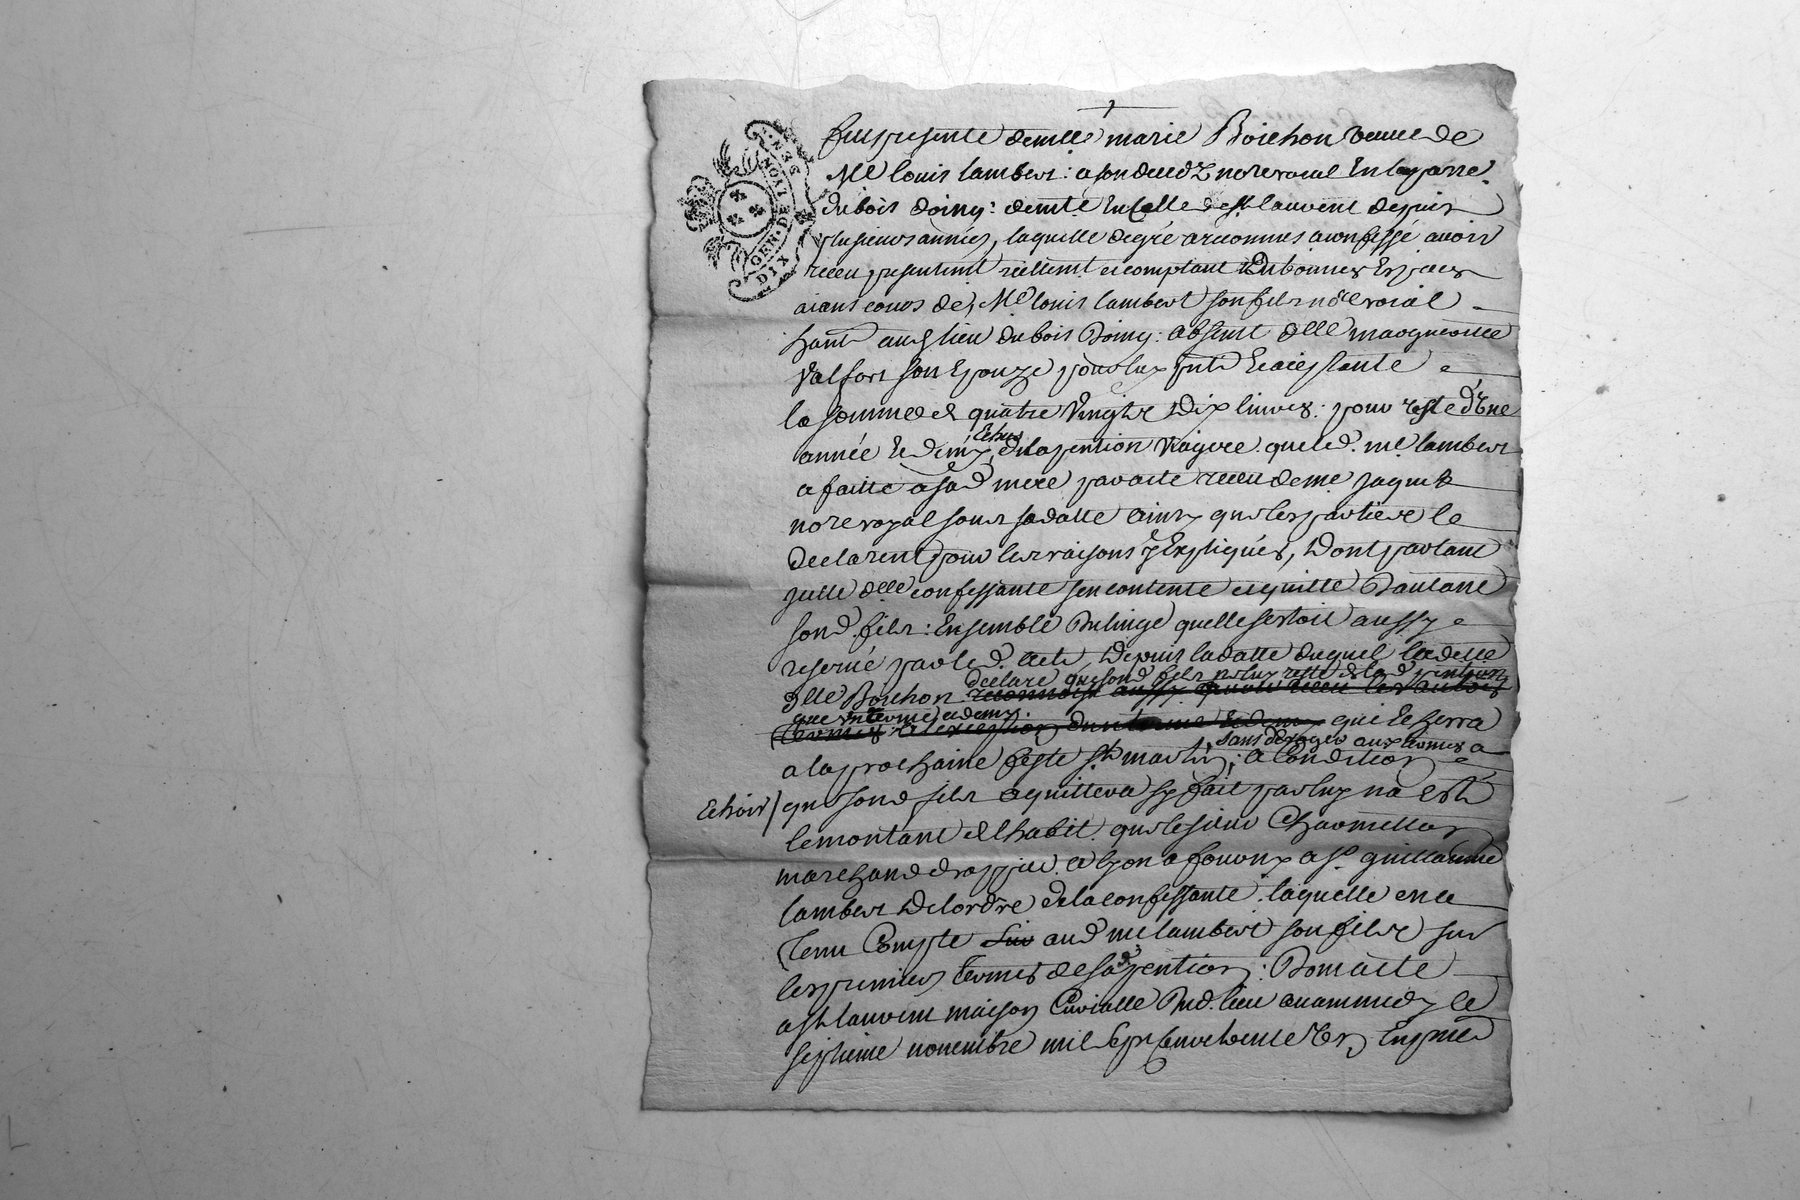 GEN. DE LYON
DIX DEN.
fut presente demlle marie Boichon veuve de
Me louis lambert: a son decedz nore roial En la parre
du bois doing: demte En Celle de st laurent depuis
plusieurs années, laquelle de gré a reconnus a confessé avoir
receu presentemt reellemt et comptant En bonnes Espaces
aiant cours de, Me louis lambert son fils nore roial
hant aud lieu du bois Doing: absent dlle margueritte
valfort son Epouze pour luy pnte Et aceptante
la somme de quatre vingts Dix livres: pour reste d'Une
année Et demy Echus de la pention viagere que led. me lambert
a faitte a sad mere par acte receu de me jaquet
nore royal sous sa datte ainsy que les parties le
declarent pour les raisons y Expliqués, Dont partant
jcelle dlle confessante s'en contente et quitte D'autant
sond. fils: Ensemble Du linge quelle s'estoit aussy
reservé par led. acte, Depuis la datte duquel ladette
dlle Boichon declare que sond fils ne luy reste de lad pention
que un terme et demy qui Echerra
a la prochaine feste st martin, sans deroger aux termes a
Echoir/ a Condition
que sond fils aquittera sy fait par luy na esté
le montant de l'habit que le sieur Charmetton
marchand drappier a lyon a fourny a sr guillaume
lambert De l'ordre de la confessante. laquelle en a
Tenu Compte aud me lambert son fils sur
les premiers termes de sad pention: Dont acte
a st laurent maison Curialle Dud. lieu avant midy le
septieme novembre mil sept cent trente Et En pnce